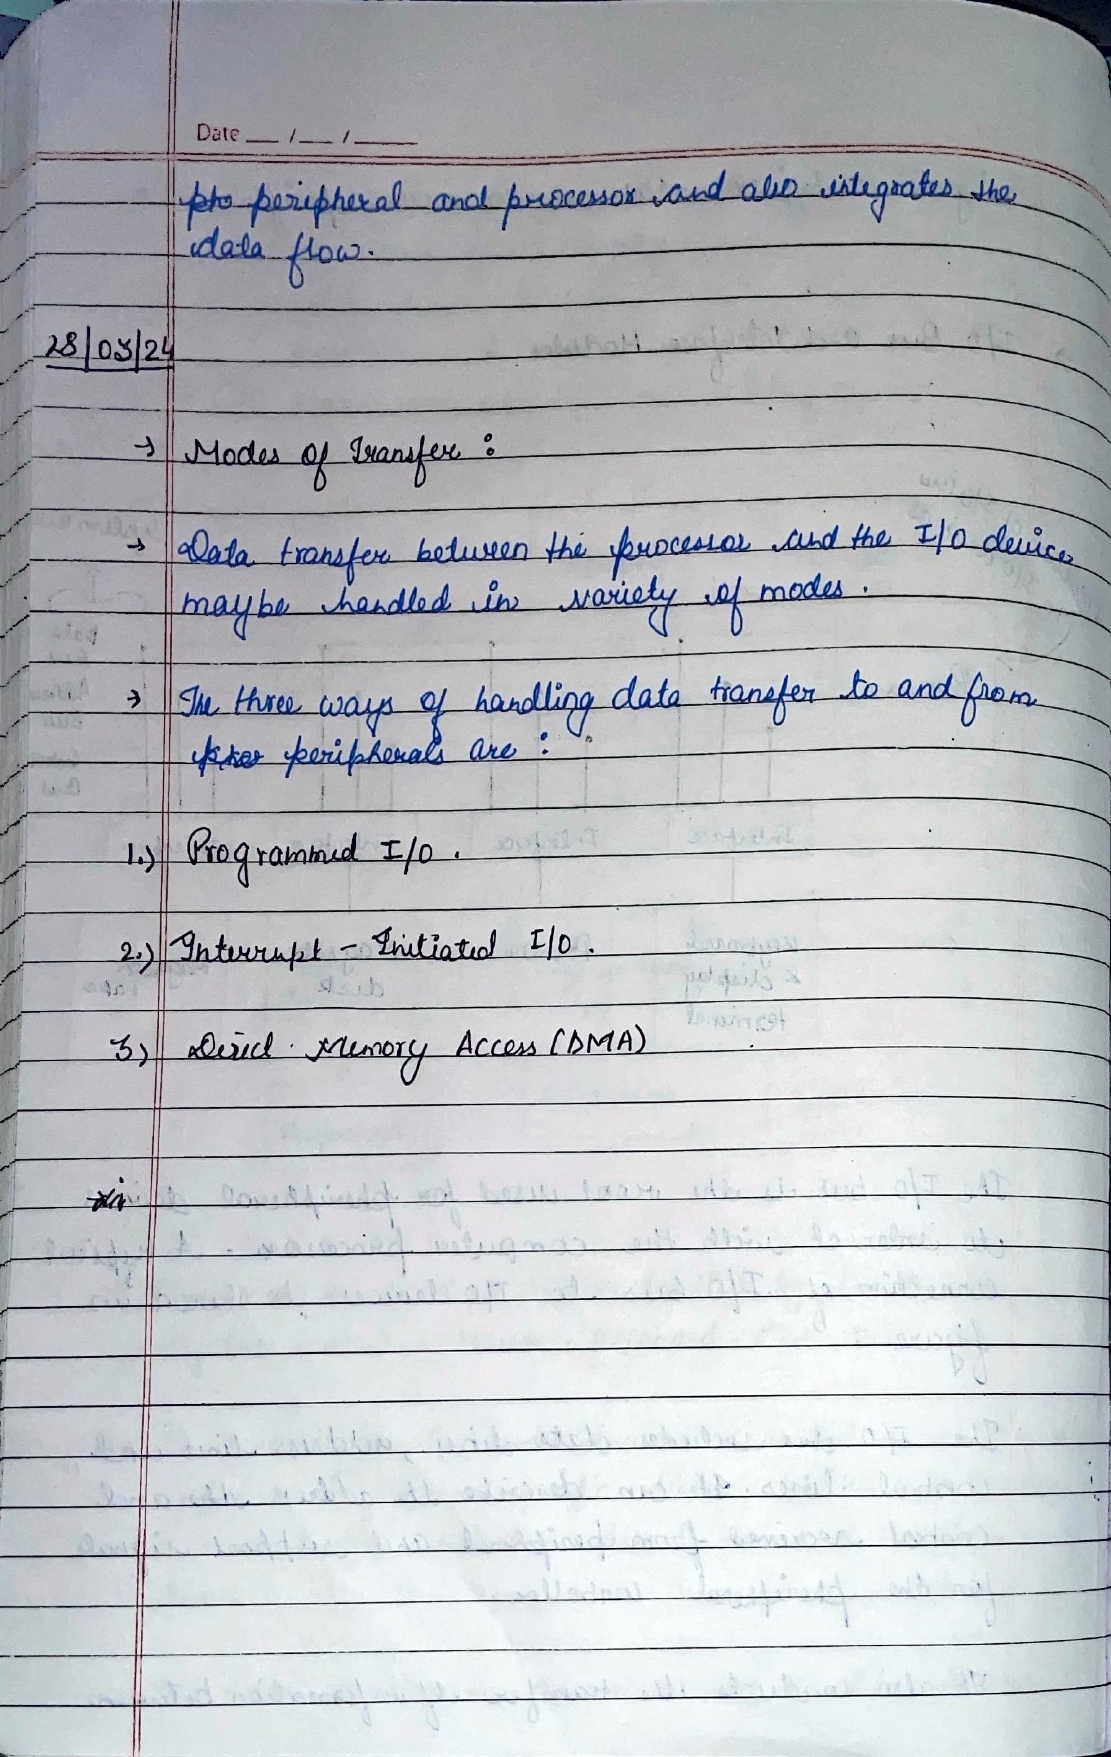 Date __/__/____
peripheral and processor and also integrates the
data flow.
28/03/24
→ Modes of Transfer :
→ Data transfer between the processor and the I/O device
maybe handled in variety of modes.
→ The three ways of handling data transfer to and from
peripherals are :
1.) Programmed I/O.
2.) Interrupt - Initiated I/O.
3) Direct Memory Access (DMA)